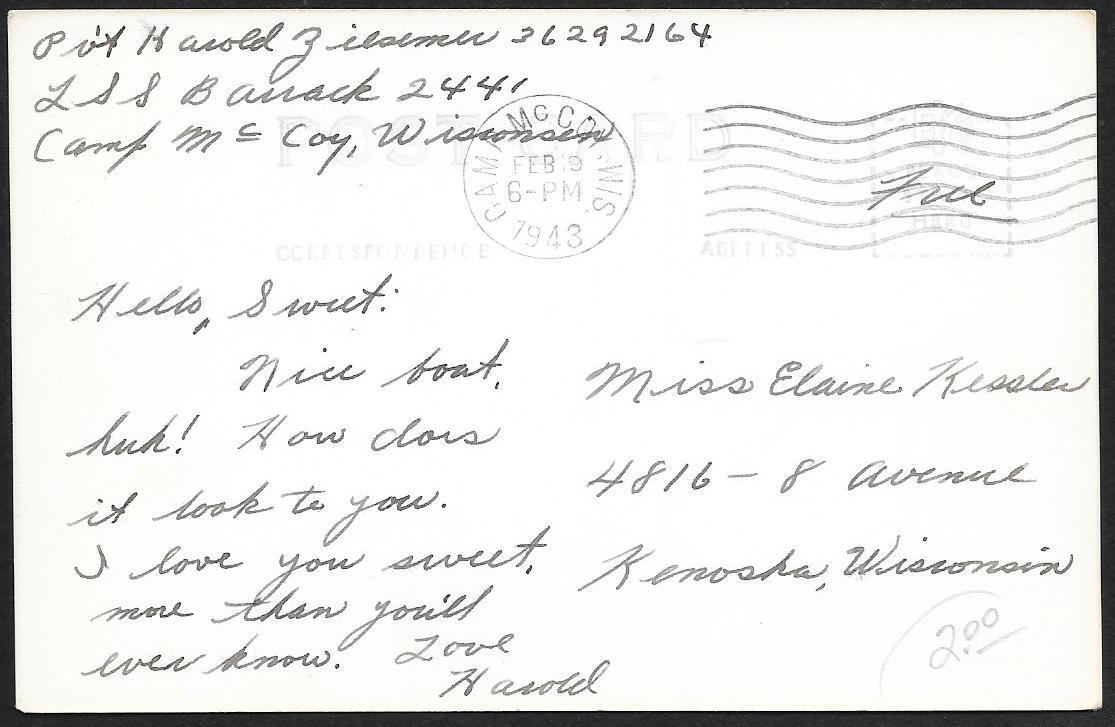 Pvt Harold Ziesemer 36292164
LSS Barrack 2441
Camp McCoy, Wisconsin
POST CARD
CAMP McCOY, WIS.
FEB 19
6-PM
1943
Free
HERE
CORRESPONDENCE
ADDRESS
Hello, Sweet:
Nice boat,
huh! How does
it look to you.
I love you sweet,
more than you'll
ever know. Love
Harold
Miss Elaine Kessler
4816 - 8 Avenue
Kenosha, Wisconsin
2.00